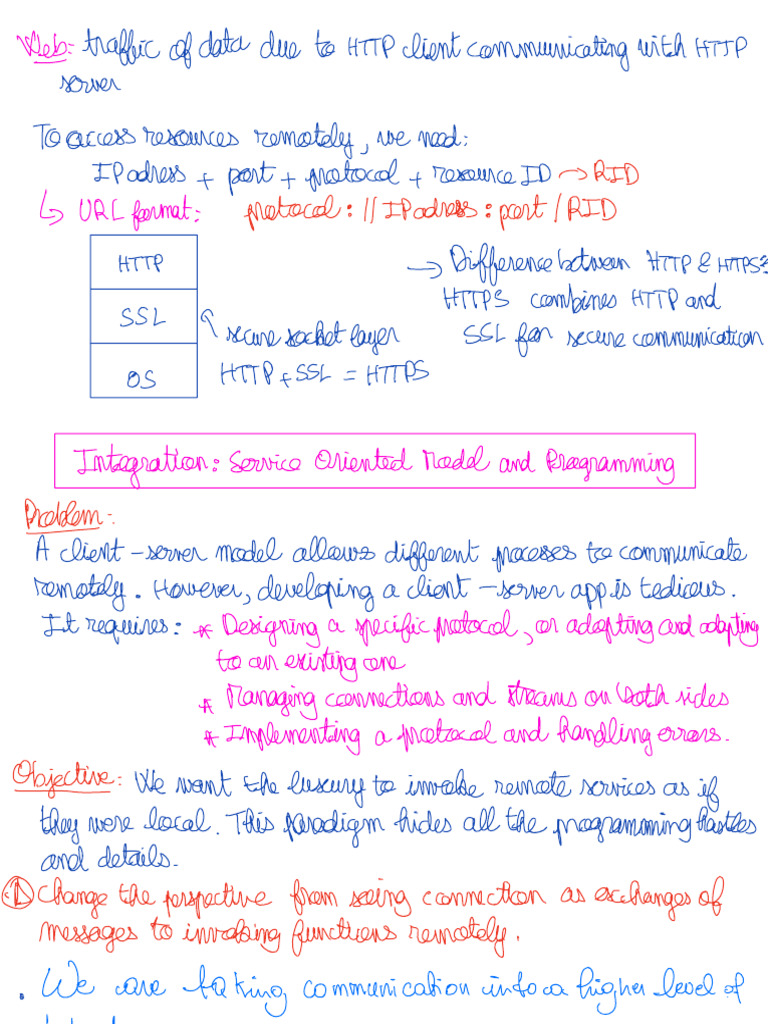 Web: traffic of data due to HTTP client communicating with HTTP
server
To access resources remotely, we need:
IP adress + port + protocol + resource ID → RID
↳ URL format: protocol://IP adress:port/RID
HTTP
SSL
OS
secure socket layer
HTTP + SSL = HTTPS
→ Difference between HTTP & HTTPS:
HTTPS combines HTTP and
SSL for secure communication
Integration: Service Oriented Model and Programming
Problem:
A client-server model allows different processes to communicate
remotely. However, developing a client-server app is tedious.
It requires: * Designing a specific protocol, or adopting and adapting
to an existing one
* Managing connections and streams on both sides
* Implementing a protocol and handling errors.
Objective: We want the luxury to invoke remote services as if
they were local. This paradigm hides all the programming hastles
and details.
Change the perspective from seing connection as exchanges of
messages to invoking functions remotely.
. We are taking communication into a higher level of